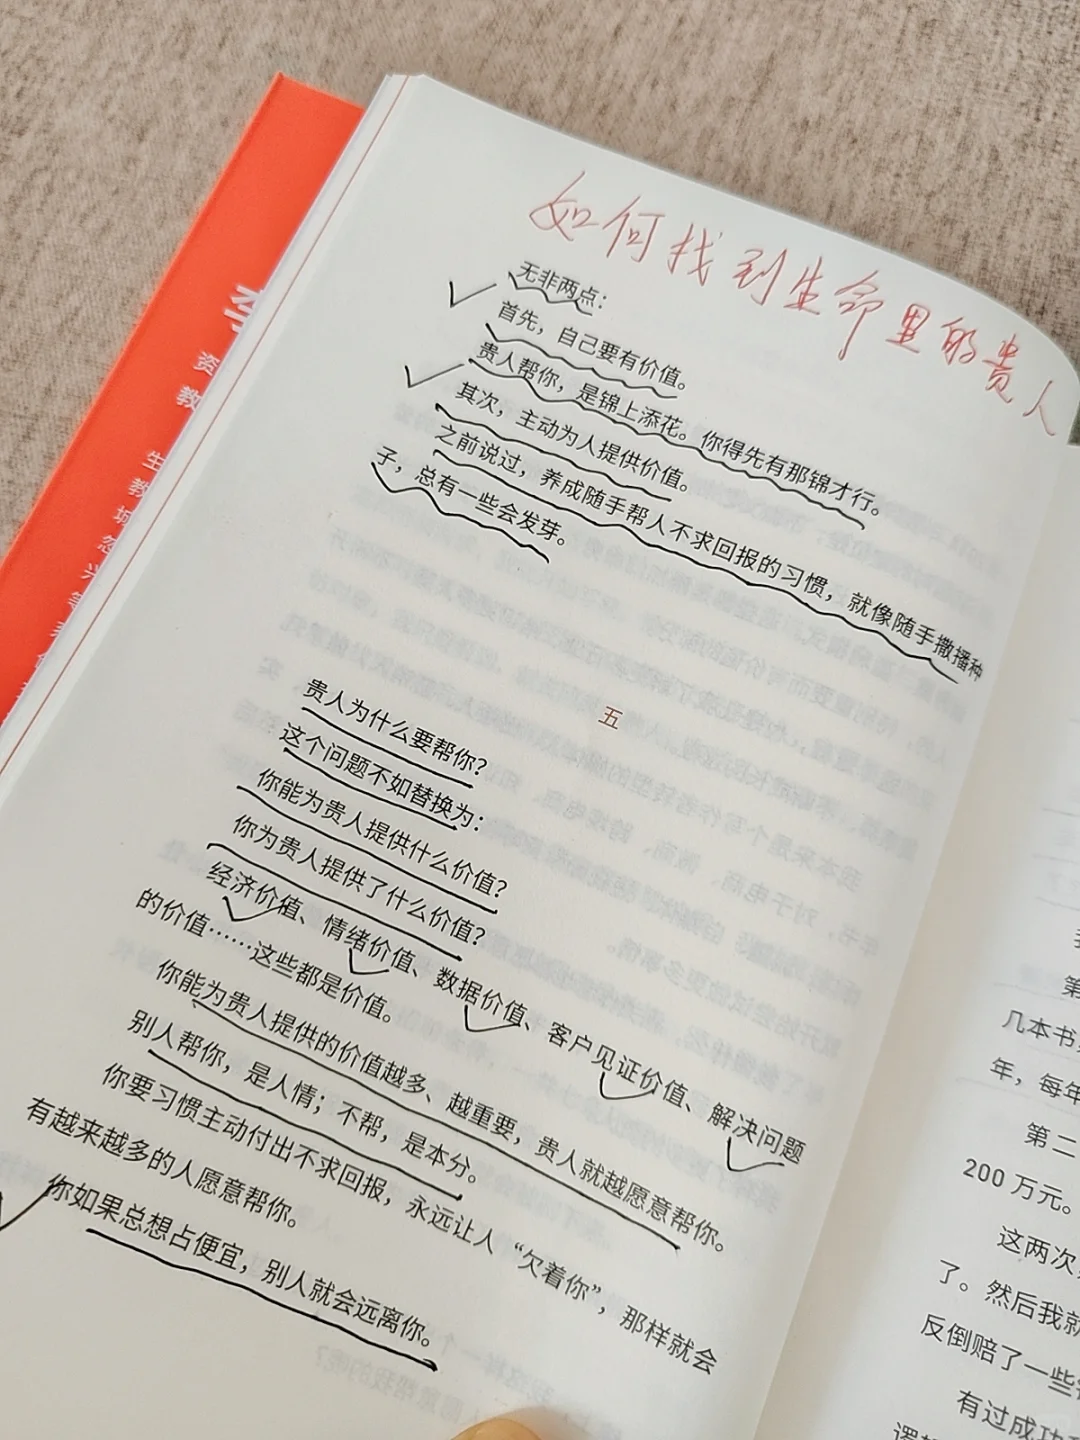 如何找到生命里的贵人
无非两点：
首先，自己要有价值。
贵人帮你，是锦上添花。你得先有那锦才行。
其次，主动为人提供价值。
之前说过，养成随手帮人不求回报的习惯，就像随手撒播种
子，总有一些会发芽。
五
贵人为什么要帮你？
这个问题不如替换为：
你能为贵人提供什么价值？
你为贵人提供了什么价值？
经济价值、情绪价值、数据价值、客户见证价值、解决问题
的价值……这些都是价值。
你能为贵人提供的价值越多、越重要，贵人就越愿意帮你。
别人帮你，是人情；不帮，是本分。
你要习惯主动付出不求回报，永远让人“欠着你”，那样就会
有越来越多的人愿意帮你。
你如果总想占便宜，别人就会远离你。
第
几本书
年，每年
第二
200 万元。
这两次
了。然后我就
反倒赔了一些
有过成功
资
教
生
教